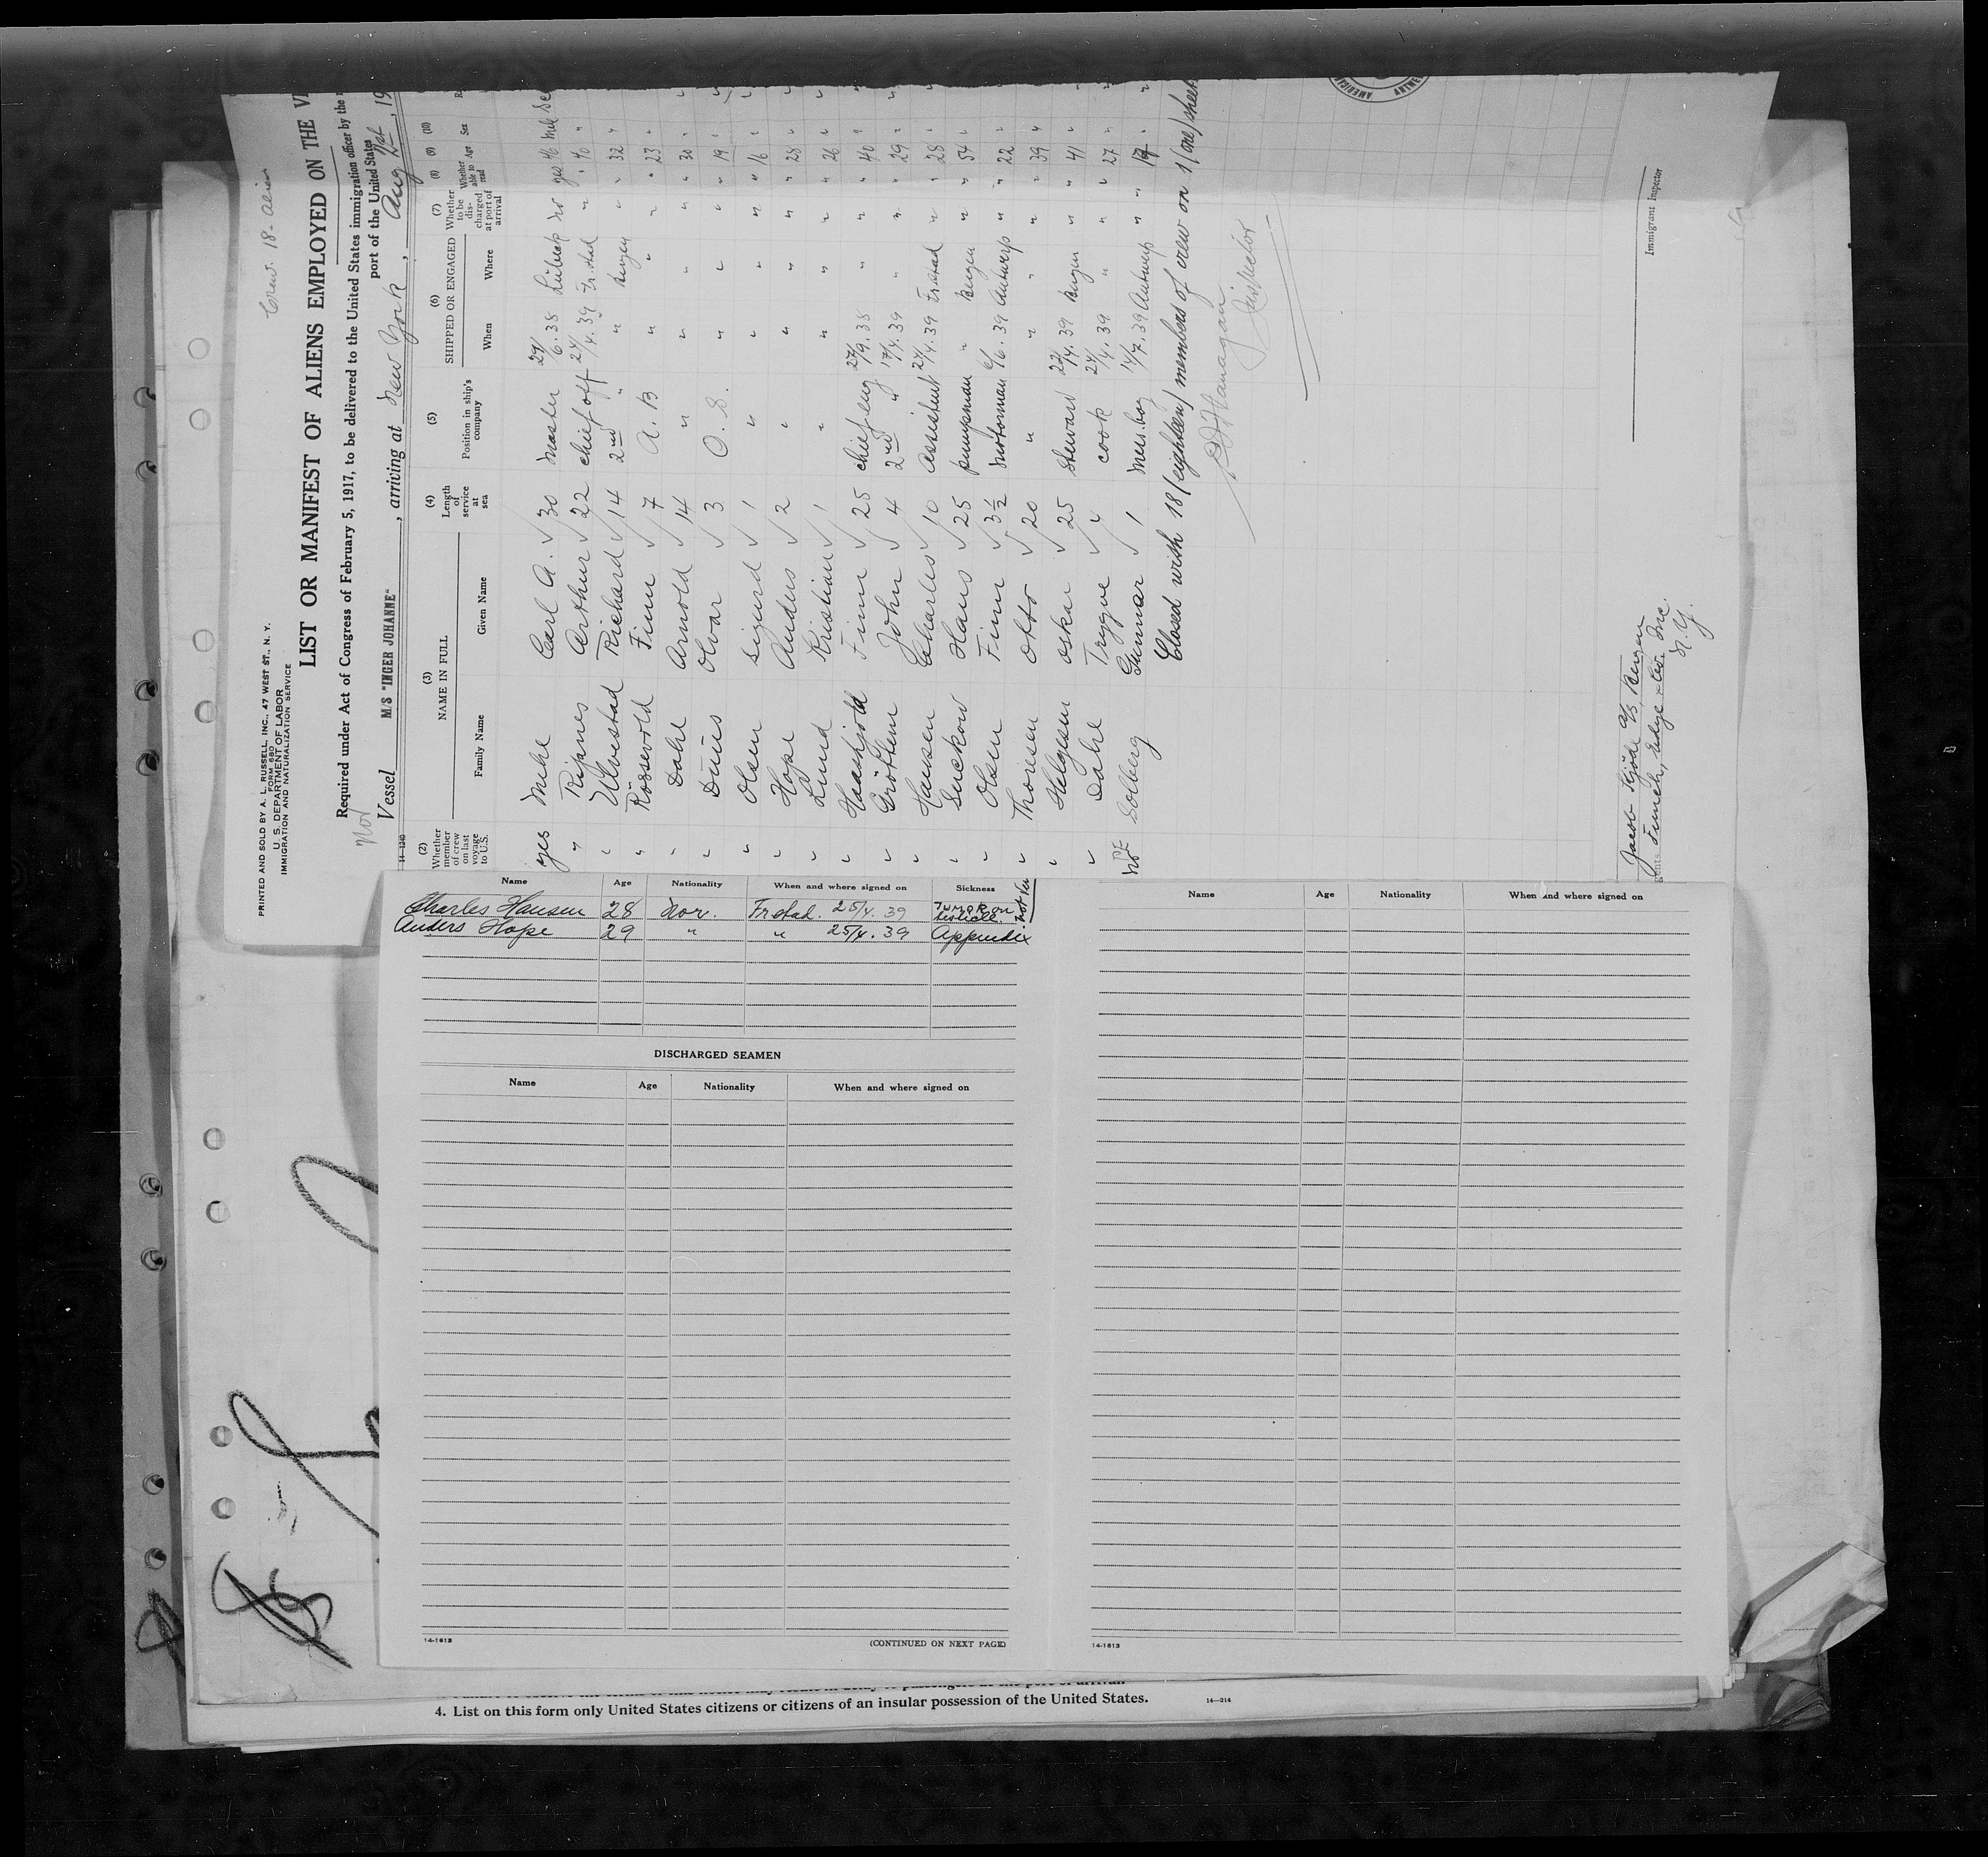 Crew. 18 - alien
PRINTED AND SOLD BY A. L. RUSSELL, INC., 47 WEST ST., N. Y.
FORM 680
U. S. DEPARTMENT OF LABOR
IMMIGRATION AND NATURALIZATION SERVICE
LIST OR MANIFEST OF ALIENS EMPLOYED ON THE
Required under Act of Congress of February 5, 1917, to be delivered to the United States immigration officer by the
port of the United States
Nor
Vessel M/S "INGER JOHANNE", arriving at New York, Aug 1st, 19
14-1240
(2) Whether member of crew on last voyage to U.S.
(3) NAME IN FULL
Family Name Given Name
(4) Length of service at sea
(5) Position in ship's company
(6) SHIPPED OR ENGAGED
When Where
(7) Whether to be discharged at port of arrival
(8) Whether able to read
(9) Age
(10) Sex
yes Carl A. √ 30 Master 6. 38 Lübeck no yes 46
" Ripnes Arthur √ 22 chief off 24/4. 39 Fr.stad " " 40 "
" Ulvestad Richard √ 14 2nd " " Bergen " " 32 "
" Rossevold Finn √ 7 A. B " " " " 23 "
" Dahl Arnold √ 14 " " " " " 30 "
" Olvar √ 3 O. S. " " " " 19 "
" Olsen Sigurd √ 1 " " " " " 16 "
" Hope Anders √ 2 " " " " " 28 "
" Lund Kristian √ 1 " " " " " 26 "
" Haaskjold Finn √ 25 chief eng 27/9. 38 " " " 40 "
" Gröttem John √ 4 2nd " 17/4. 39 " " " 29 "
" Hansen Charles √ 10 assistent 24/4. 39 Frstad " " 28 "
" Suckow Hans √ 25 pumpman " Bergen " " 54 "
" Olsen Finn √ 3½ Motorman 6/6. 39 Antwerp " " 22 "
" Thorsen Otto √ 20 " " " " " 39 "
" Helgesen Oskar √ 25 Steward 22/4. 39 Bergen " " 41 "
" Dahl Trygve √ 4 cook 24/4. 39 " " " 27 "
no Solberg Gunnar √ 1 Mess. boy 14/7. 39 Antwerp " " 17 "
Closed with 18 (eighteen) members of crew on 1 (one) sheet
Inspector
Jacob Kjöde A/S Bergen
Funch, Edye & Co. Inc.
N. Y.
Immigrant Inspector
Name Age Nationality When and where signed on Sickness
Charles Hansen 28 Nor. Frstad. 25/4. 39 Tumor on testicle.
Anders Hope 29 " " 25/4. 39 Appendix
DISCHARGED SEAMEN
Name Age Nationality When and where signed on
14-1613
(CONTINUED ON NEXT PAGE)
Name Age Nationality When and where signed on
14-1613
4. List on this form only United States citizens or citizens of an insular possession of the United States. 14—214